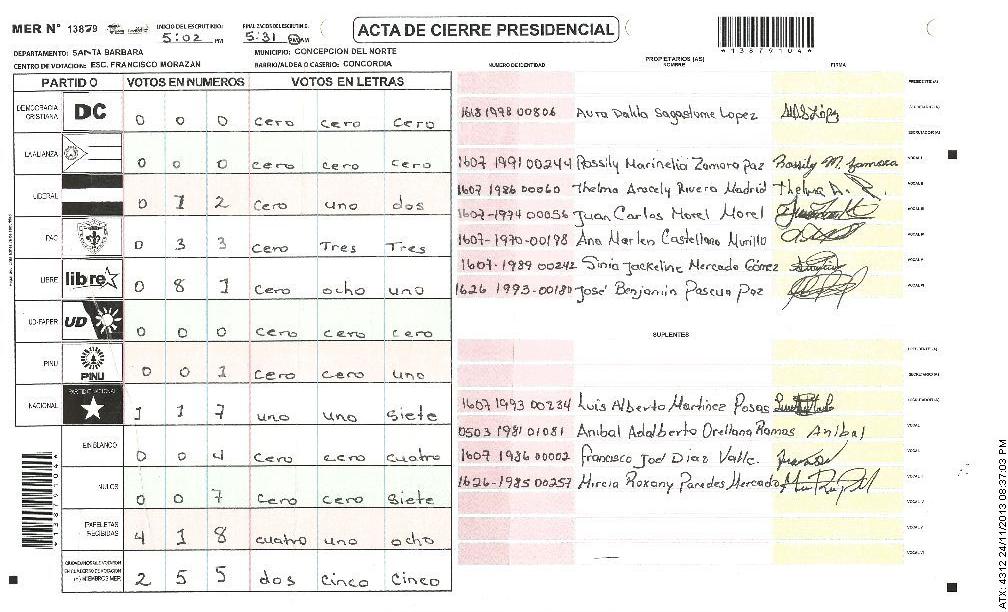 MER N° 13879
INICIO DEL ESCRUTINIO: 5:02 PM
FINALIZACION DEL ESCRUTINIO: 5:31 PM AM
ACTA DE CIERRE PRESIDENCIAL
*13879104*
DEPARTAMENTO: SANTA BARBARA
MUNICIPIO: CONCEPCION DEL NORTE
CENTRO DE VOTACION: ESC. FRANCISCO MORAZAN
BARRIO/ALDEA O CASERIO: CONCORDIA
PARTIDO VOTOS EN NUMEROS VOTOS EN LETRAS
DEMOCRACIA CRISTIANA DC 0 0 0 cero cero cero
LA ALIANZA 0 0 0 cero cero cero
LIBERAL 0 1 2 cero uno dos
PAC 0 3 3 cero Tres Tres
LIBRE libre 0 8 1 cero ocho uno
UD-FAPER UD 0 0 0 cero cero cero
PINU PINU 0 0 1 cero cero uno
NACIONAL PARTIDO NACIONAL 1 1 7 uno uno siete
EN BLANCO 0 0 4 cero cero cuatro
NULOS 0 0 7 cero cero siete
PAPELETAS RECIBIDAS 4 1 8 cuatro uno ocho
CIUDADANOS QUE VOTARON EN CUADERNO DE VOTACION (+) MIEMBROS MER 2 5 5 dos cinco cinco
PROPIETARIOS (AS)
NUMERO DE IDENTIDAD NOMBRE FIRMA
PRESIDENTE (A)
1618 1998 00806 Aura Dalila Sagastume Lopez
SECRETARIO (A)
1607 1991 00244 Rossily Marinelia Zamora Paz Rossily M. Zamora VOCAL I
1607 1986 00060 Thelma Aracely Rivera Madrid Thelma A. VOCAL II
1607-1974 00056 Juan Carlos Morel Morel VOCAL III
1607-1970-00198 Ana Marlen Castellano Murillo VOCAL IV
1607-1989 00242 Sinia Jackeline Mercado Gómez VOCAL V
1626 1993-00180 José Benjamin Pascua Paz VOCAL VI
SUPLENTES
PRESIDENTE (A)
SECRETARIO (A)
1607 1993 00234 Luis Alberto Martinez Posas
0503 1981 01081 Anibal Adalberto Orellana Ramos Anibal VOCAL I
1607 1986 00002 Francisco Joel Diaz Valle.
1626-1985 00257 Mircia Roxany Paredes Mercado
VOCAL V
VOCAL VI
ATX: 4312 24/11/2013 08:37:03 PM